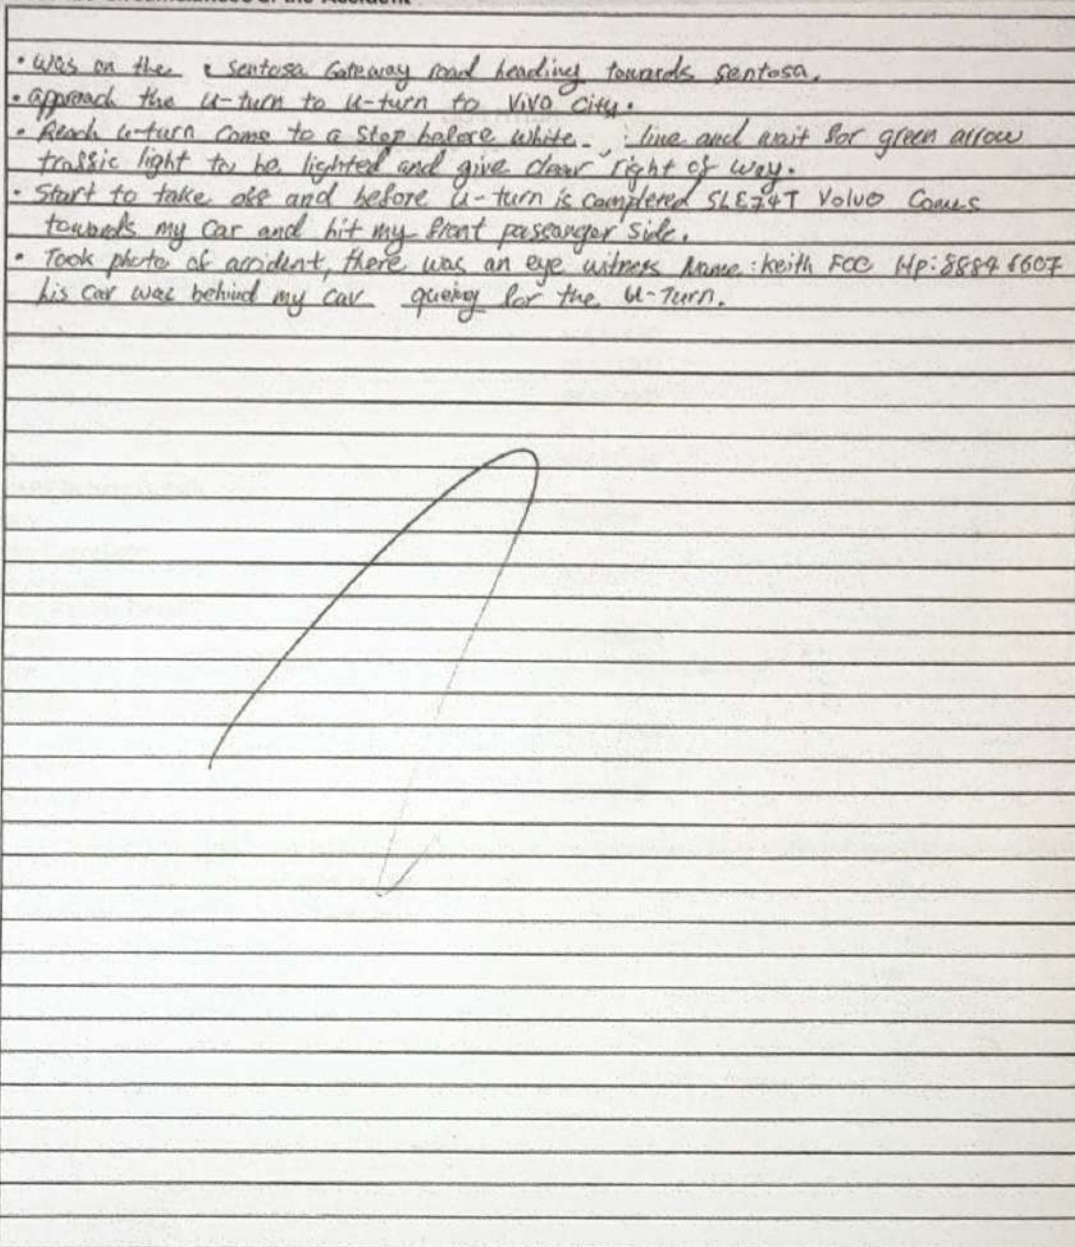 Circumstances of the Accident
• Was on the sentosa Gateway road heading towards sentosa.
• approach the u-turn to u-turn to ViVo City.
• Reach u-turn Come to a stop before white line and wait for green arrow
traffic light to be lighted and give clear right of way.
• Start to take off and before U-turn is completed SLE74T Volvo Comes
towards my car and hit my front passanger side.
• Took photo of accident, there was an eye witness Name: Keith FOO Hp: 8884 6607
his car was behind my car queing for the U-Turn.